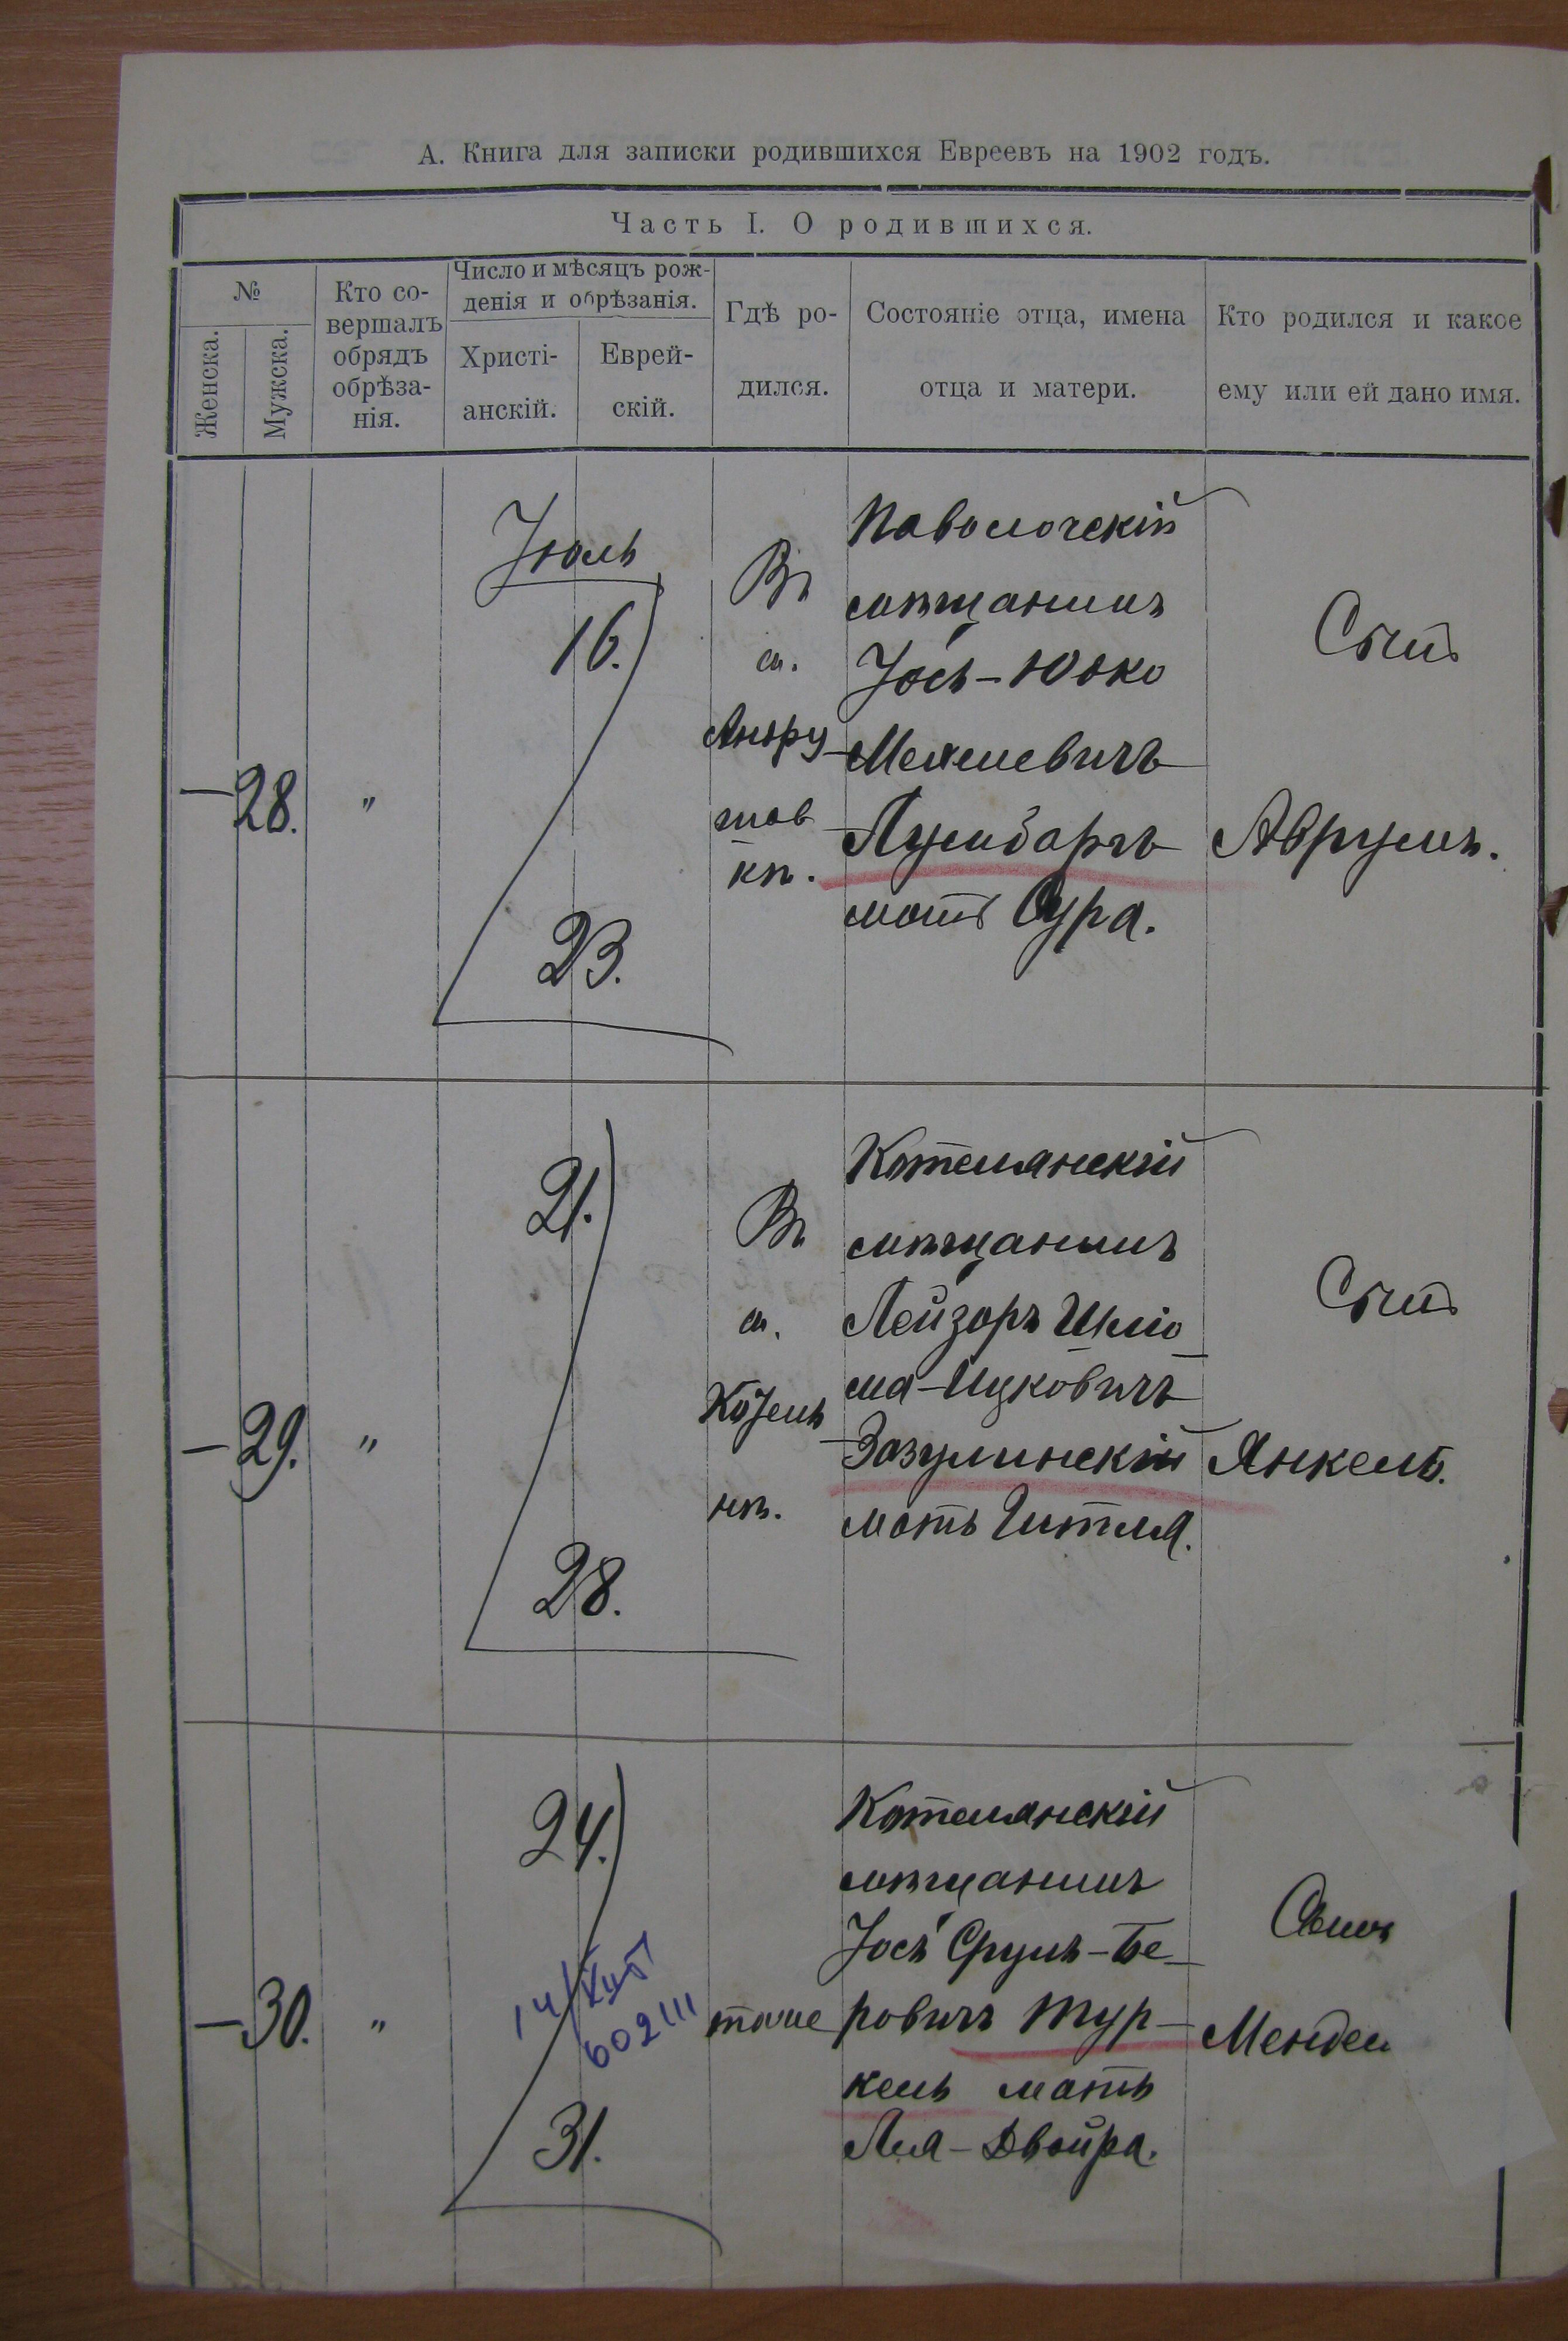 А. Книга для записки родившихся Евреевъ на 1902 годъ.
Часть I. О родившихся.
№
Женска.
Мужска.
Кто со-
вершалъ
обрядъ
обрѣза-
нія.
Число и мѣсяцъ рож-
денія и обрѣзанія.
Христі-
анскій.
Еврей-
скій.
Гдѣ ро-
дился.
Состояніе отца, имена
отца и матери.
Кто родился и какое
ему или ей дано имя.
—28.
"
Іюль
16.
23.
Въ
м.
кѣ.
Паволочскій
мѣщанинъ
Іось-Юдко
Мехелевичъ
мать Сура.
Сынъ
Аврумъ.
—29.
"
21.
28.
Въ
м.
нѣ.
Котелянскій
мѣщанинъ
Лейзоръ Шліо
ма-Ицковичъ
Зазулинскій
мать Гитля.
Сынъ
Янкель.
—30.
"
24.
31.
тоже
Котелянскій
мѣщанинъ
Іось Сруль-Бе-
ровичъ Тур-
кель мать
Лея-Двойра.
Сынъ
Мендель